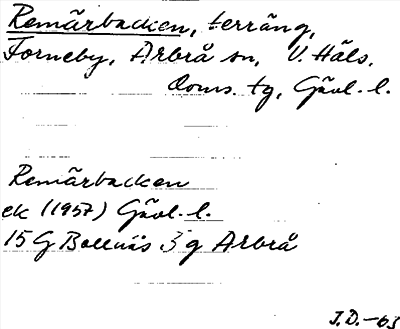 Remärbacken, terräng,
Forneby, Arbrå sn, V. Häls.
Doms. tg, Gävl. l.
Remärbacken
ek (1957) Gävl. l.
15 G Bollnäs 3 g Arbrå
J.D. -63